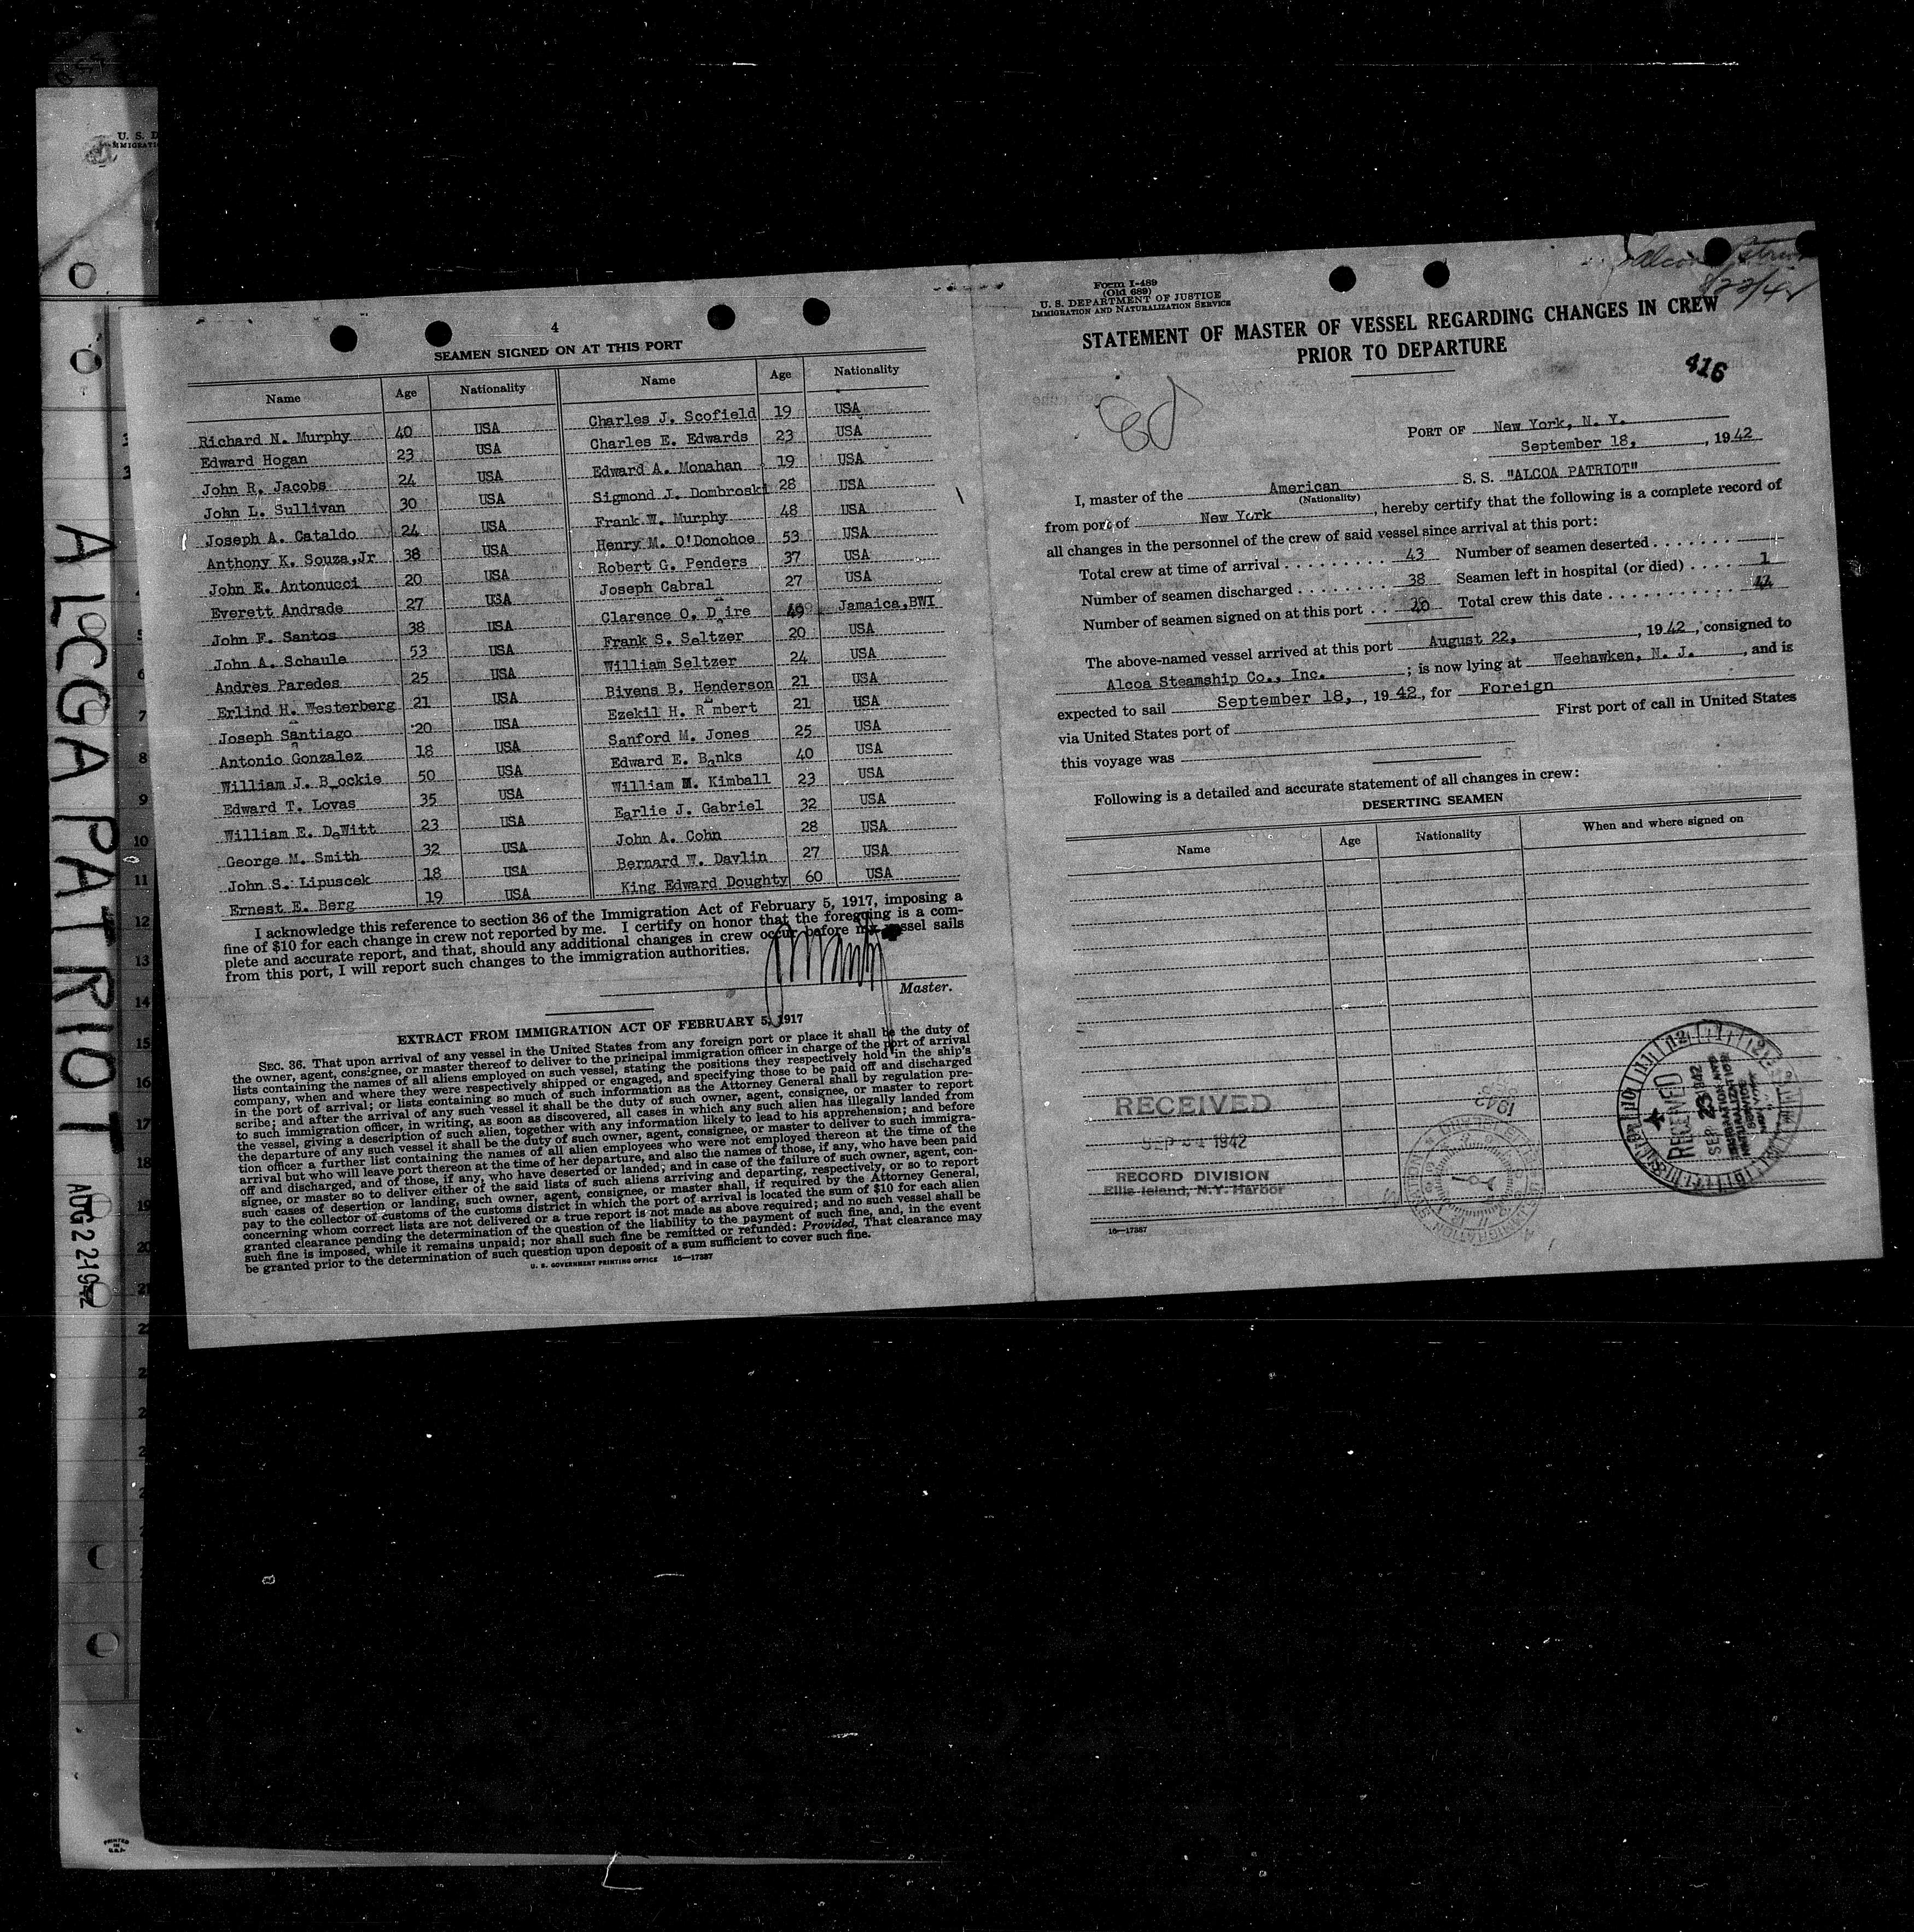 U. S. D
MMIGRATI
ALCOA PATRIOT
AUG 22 1942
PRINTED
IN
U.S.A.
4
SEAMEN SIGNED ON AT THIS PORT
Name Age Nationality Name Age Nationality
Richard N. Murphy 40 USA Charles J. Scofield 19 USA
Edward Hogan 23 USA Charles E. Edwards 23 USA
John R. Jacobs 24 USA Edward A. Monahan 19 USA
John L. Sullivan 30 USA Sigmond J. Dombroski 28 USA
Joseph A. Cataldo 24 USA Frank W. Murphy 48 USA
Anthony K. Souza,Jr 38 USA Henry M. O'Donohoe 53 USA
John E. Antonucci 20 USA Robert G. Penders 37 USA
Everett Andrade 27 USA Joseph Cabral 27 USA
John F. Santos 38 USA Clarence O. D ire 49 Jamaica,BWI
John A. Schaule 53 USA Frank S. Seltzer 20 USA
Andres Paredes 25 USA William Seltzer 24 USA
Erlind H. Westerberg 21 USA Bivens B. Henderson 21 USA
Joseph Santiago 20 USA Ezekil H. R mbert 21 USA
Antonio Gonzalez 18 USA Sanford M. Jones 25 USA
William J. B ockie 50 USA Edward E. Banks 40 USA
Edward T. Lovas 35 USA William M. Kimball 23 USA
William E. DeWitt 23 USA Earlie J. Gabriel 32 USA
George M. Smith 32 USA John A. Cohn 28 USA
John S. Lipuscek 18 USA Bernard W. Davlin 27 USA
Ernest E. Berg 19 USA King Edward Doughty 60 USA
I acknowledge this reference to section 36 of the Immigration Act of February 5, 1917, imposing a
fine of $10 for each change in crew not reported by me. I certify on honor that the foregoing is a com-
plete and accurate report, and that, should any additional changes in crew occur before my vessel sails
from this port, I will report such changes to the immigration authorities.
Master.
EXTRACT FROM IMMIGRATION ACT OF FEBRUARY 5, 1917
SEC. 36. That upon arrival of any vessel in the United States from any foreign port or place it shall be the duty of
the owner, agent, consignee, or master thereof to deliver to the principal immigration officer in charge of the port of arrival
lists containing the names of all aliens employed on such vessel, stating the positions they respectively hold in the ship's
company, when and where they were respectively shipped or engaged, and specifying those to be paid off and discharged
in the port of arrival; or lists containing so much of such information as the Attorney General shall by regulation pre-
scribe; and after the arrival of any such vessel it shall be the duty of such owner, agent, consignee, or master to report
to such immigration officer, in writing, as soon as discovered, all cases in which any such alien has illegally landed from
the vessel, giving a description of such alien, together with any information likely to lead to his apprehension; and before
the departure of any such vessel it shall be the duty of such owner, agent, consignee, or master to deliver to such immigra-
tion officer a further list containing the names of all alien employees who were not employed thereon at the time of the
arrival but who will leave port thereon at the time of her departure, and also the names of those, if any, who have been paid
off and discharged, and of those, if any, who have deserted or landed; and in case of the failure of such owner, agent, con-
signee, or master so to deliver either of the said lists of such aliens arriving and departing, respectively, or so to report
such cases of desertion or landing, such owner, agent, consignee, or master shall, if required by the Attorney General,
pay to the collector of customs of the customs district in which the port of arrival is located the sum of $10 for each alien
concerning whom correct lists are not delivered or a true report is not made as above required; and no such vessel shall be
granted clearance pending the determination of the question of the liability to the payment of such fine, and, in the event
such fine is imposed, while it remains unpaid; nor shall such fine be remitted or refunded: Provided, That clearance may
be granted prior to the determination of such question upon deposit of a sum sufficient to cover such fine.
U. S. GOVERNMENT PRINTING OFFICE 16—17387
Form I-489
(Old 689)
U. S. DEPARTMENT OF JUSTICE
IMMIGRATION AND NATURALIZATION SERVICE
STATEMENT OF MASTER OF VESSEL REGARDING CHANGES IN CREW
PRIOR TO DEPARTURE
416
PORT OF New York, N. Y.
September 18, , 1942
I, master of the American S. S. "ALCOA PATRIOT"
(Nationality)
from port of New York , hereby certify that the following is a complete record of
all changes in the personnel of the crew of said vessel since arrival at this port:
Total crew at time of arrival . . . . . . . . . 43 Number of seamen deserted . . . . . . .
Number of seamen discharged . . . . . . . . 38 Seamen left in hospital (or died) . . . . . 1
Number of seamen signed on at this port . . 40 Total crew this date . . . . . . . . . . . 44
The above-named vessel arrived at this port August 22, , 1942, consigned to
Alcoa Steamship Co., Inc. ; is now lying at Weehawken, N. J. , and is
expected to sail September 18, , 1942, for Foreign
via United States port of First port of call in United States
this voyage was
Following is a detailed and accurate statement of all changes in crew:
DESERTING SEAMEN
Name Age Nationality When and where signed on
RECEIVED
SEP 1942
RECORD DIVISION
Ellis Island, N.Y. Harbor
1942
RECEIVED
SEP 23 1942
IMMIGRATION AND
NATURALIZATION
SERVICE
16—17387